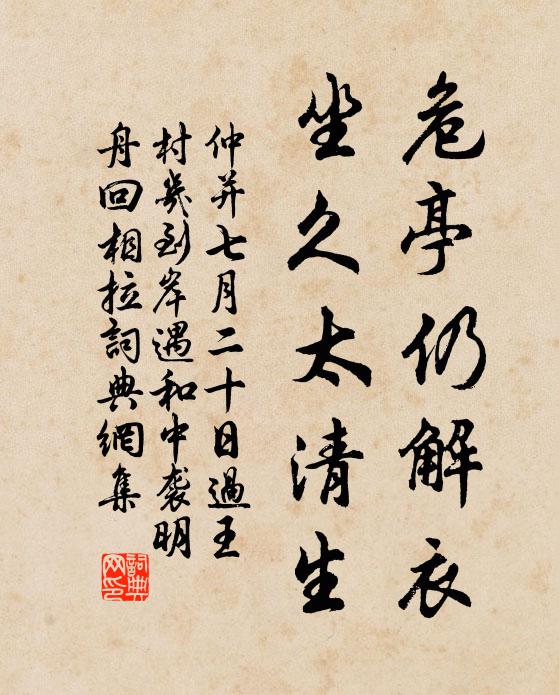 危亭仍解衣
坐久太清生
仲并七月二十日過王
村幾到岸遇和中袭明
舟回相拉詞典網集
詞典
网印